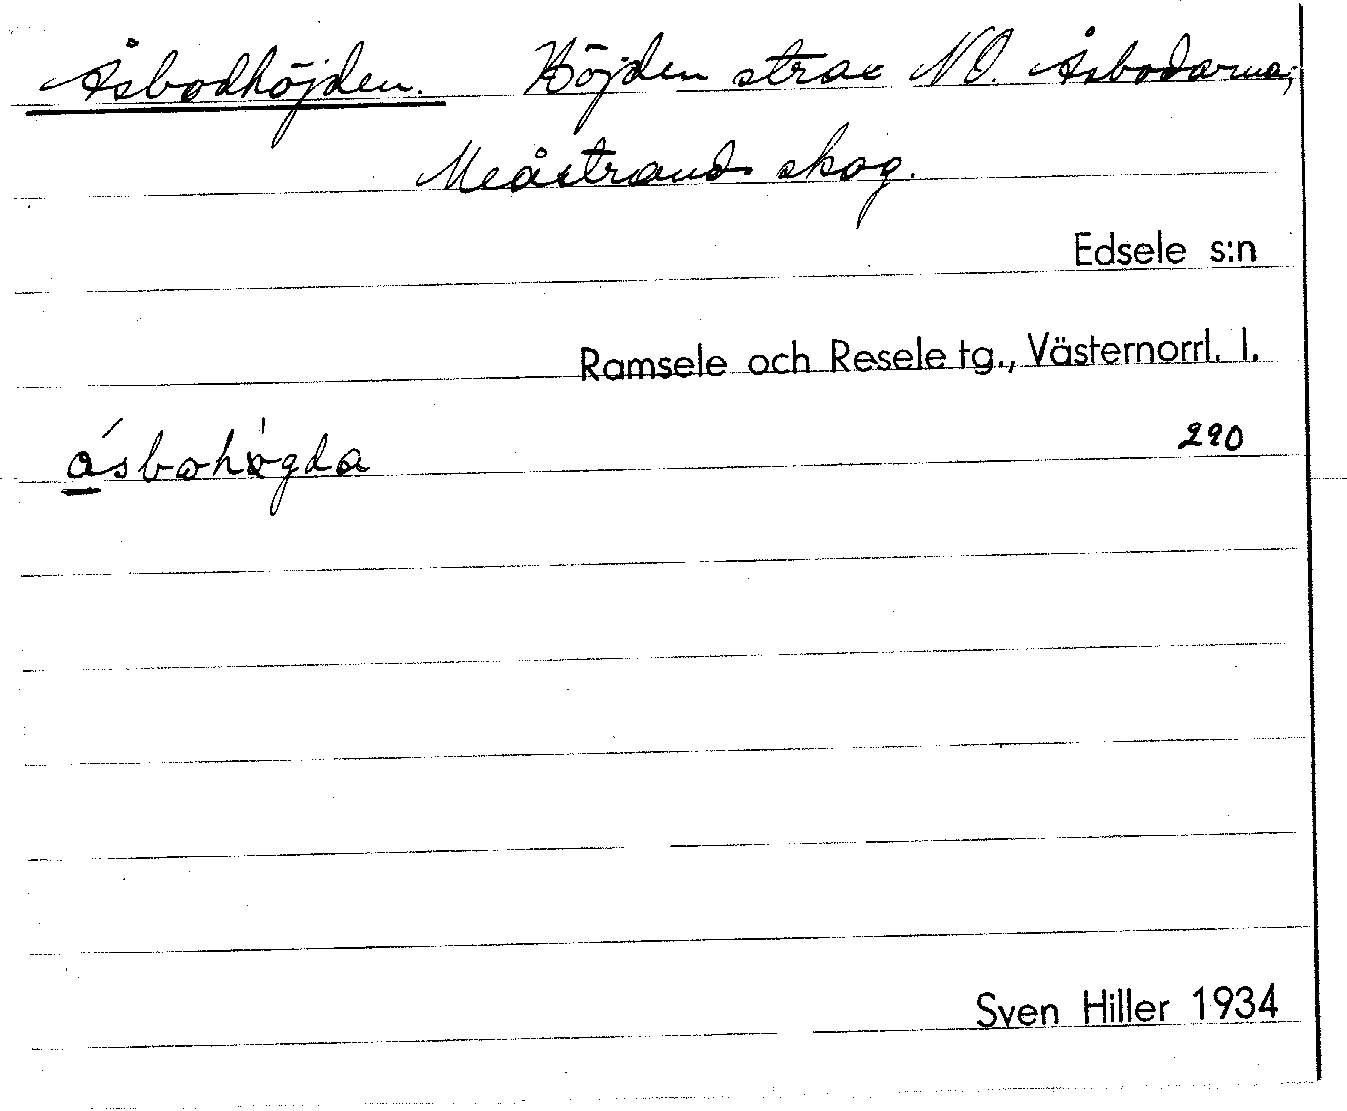 Åsbodhöjden. Höjden strax NO. Åsbodarna;
Meåstrands skog.
Edsele s:n
Ramsele och Resele tg., Västernorrl. l.
290
Sven Hiller 1934